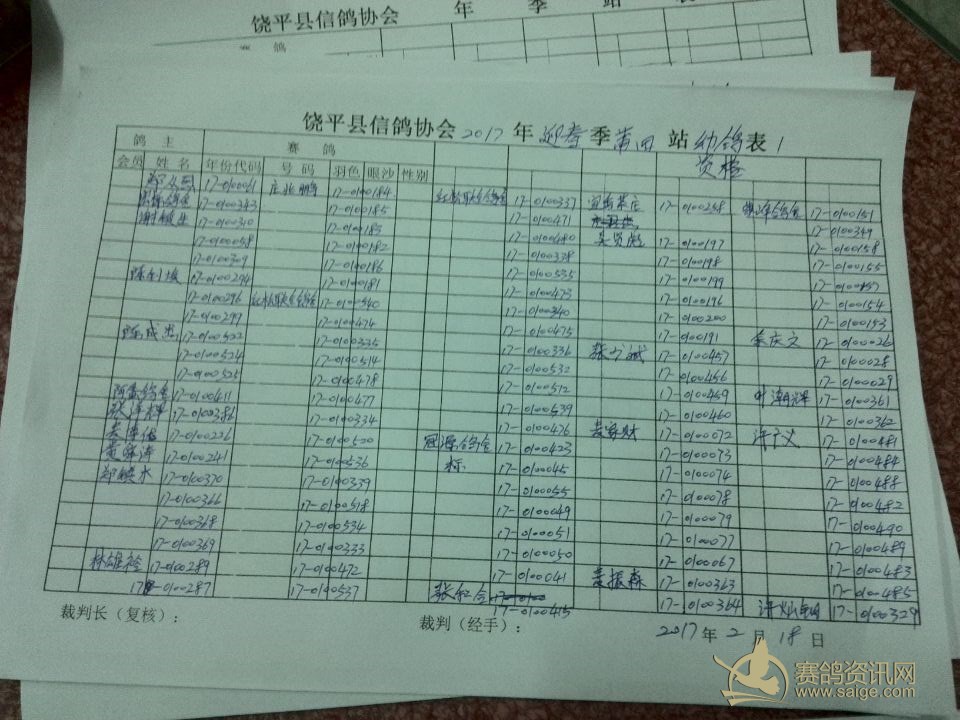 饶平县信鸽协会 年 季 站 表
赛 鸽
饶平县信鸽协会2017年迎春季莆田站幼鸽表1
资格
鸽 主 赛 鸽
会员 姓 名 年份代码 号 码 羽色 眼沙 性别
17-0100184 17-0100337 17-0100258 17-0100151
17-0100343 17-0100185 17-0100471 17-0100349
17-0100310 17-0100183 17-0100480 17-0100197 17-0100158
17-0100058 17-0100182 17-0100338 17-0100198 17-0100155
17-0100309 17-0100186 17-0100535 17-0100199 17-0100157
17-0100294 17-0100181 17-0100473 17-0100196 17-0100154
17-0100296 17-0100540 17-0100340 17-0100200 17-0100153
17-0100299 17-0100474 17-0100475 17-0100191 余庆文 17-0100026
17-0100522 17-0100335 17-0100336 17-0100457 17-0100028
17-0100524 17-0100514 17-0100532 17-0100456 17-0100029
17-0100525 17-0100478 17-0100512 17-0100459 叶潮辉 17-0100361
17-0100411 17-0100477 17-0100539 17-0100460 17-0100362
17-0100386 17-0100334 17-0100476 黄家财 17-0100072 许广义 17-0100481
17-0100226 17-0100520 冠源鸽舍 17-0100423 17-0100073 17-0100484
17-0100241 17-0100536 标 17-0100045 17-0100074 17-0100488
郑镇水 17-0100370 17-0100339 17-0100055 17-0100078 17-0100482
17-0100366 17-0100518 17-0100049 17-0100079 17-0100490
17-0100368 17-0100534 17-0100051 17-0100077 17-0100489
17-0100369 17-0100333 17-0100050 17-0100067 17-0100483
林雄裕 17-0100289 17-0100472 17-0100041 黄振森 17-0100363 17-0100485
17-0100287 17-0100537 17-0100415 17-0100364 17-0100329
裁判长（复核）： 裁判（经手）： 2017年2月18日
赛鸽资讯网
www.saige.com